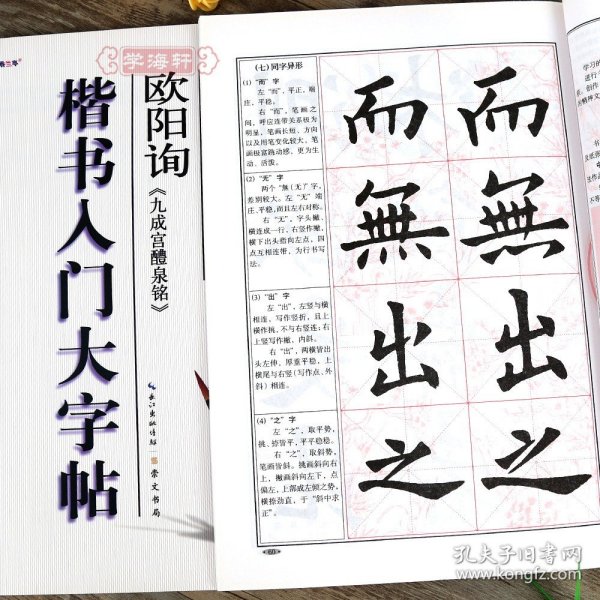 学海轩
欧阳询
《九成宫醴泉铭》
楷书入门大字帖
长江出版传媒
崇文书局
(七)同字异形
(1)"而"字
左"而",平正、端
庄、平稳。
右"而",笔画之
间,呼应连带关系极为
明显,笔画长短、方向
以及用笔变化较大,笔
画极富跳动感,更为生
动、活泼。
(2)"无"字
两个"無(无)"字,
差别较大。左"无"端
庄、平稳,而且左右对称。
右"无",字头撇、
横连成一行,右竖作撇,
横下出头指向左点,四
点互相连带,为行书写
法。
(3)"出"字
左"出",左竖与横
相连,写作竖折,且上
横作挑,不与右竖连;右
上竖写作撇,内斜。
右"出",两横皆出
头左伸,厚重平稳,上
横尾与右竖(写作点、外
斜)相连。
(4)"之"字
左"之",取平势,
挑、捺皆平,平平稳稳。
右"之",取斜势,
笔画皆斜。挑画斜向右
上,撇画斜向左下,点
偏左,上部成左倾之势,
横捺劲直,于"斜中求
正"。
而 而
無 無
出 出
之 之
60
学习的
进行
创作
精神文
孔夫子旧书网
www.kongfz.com